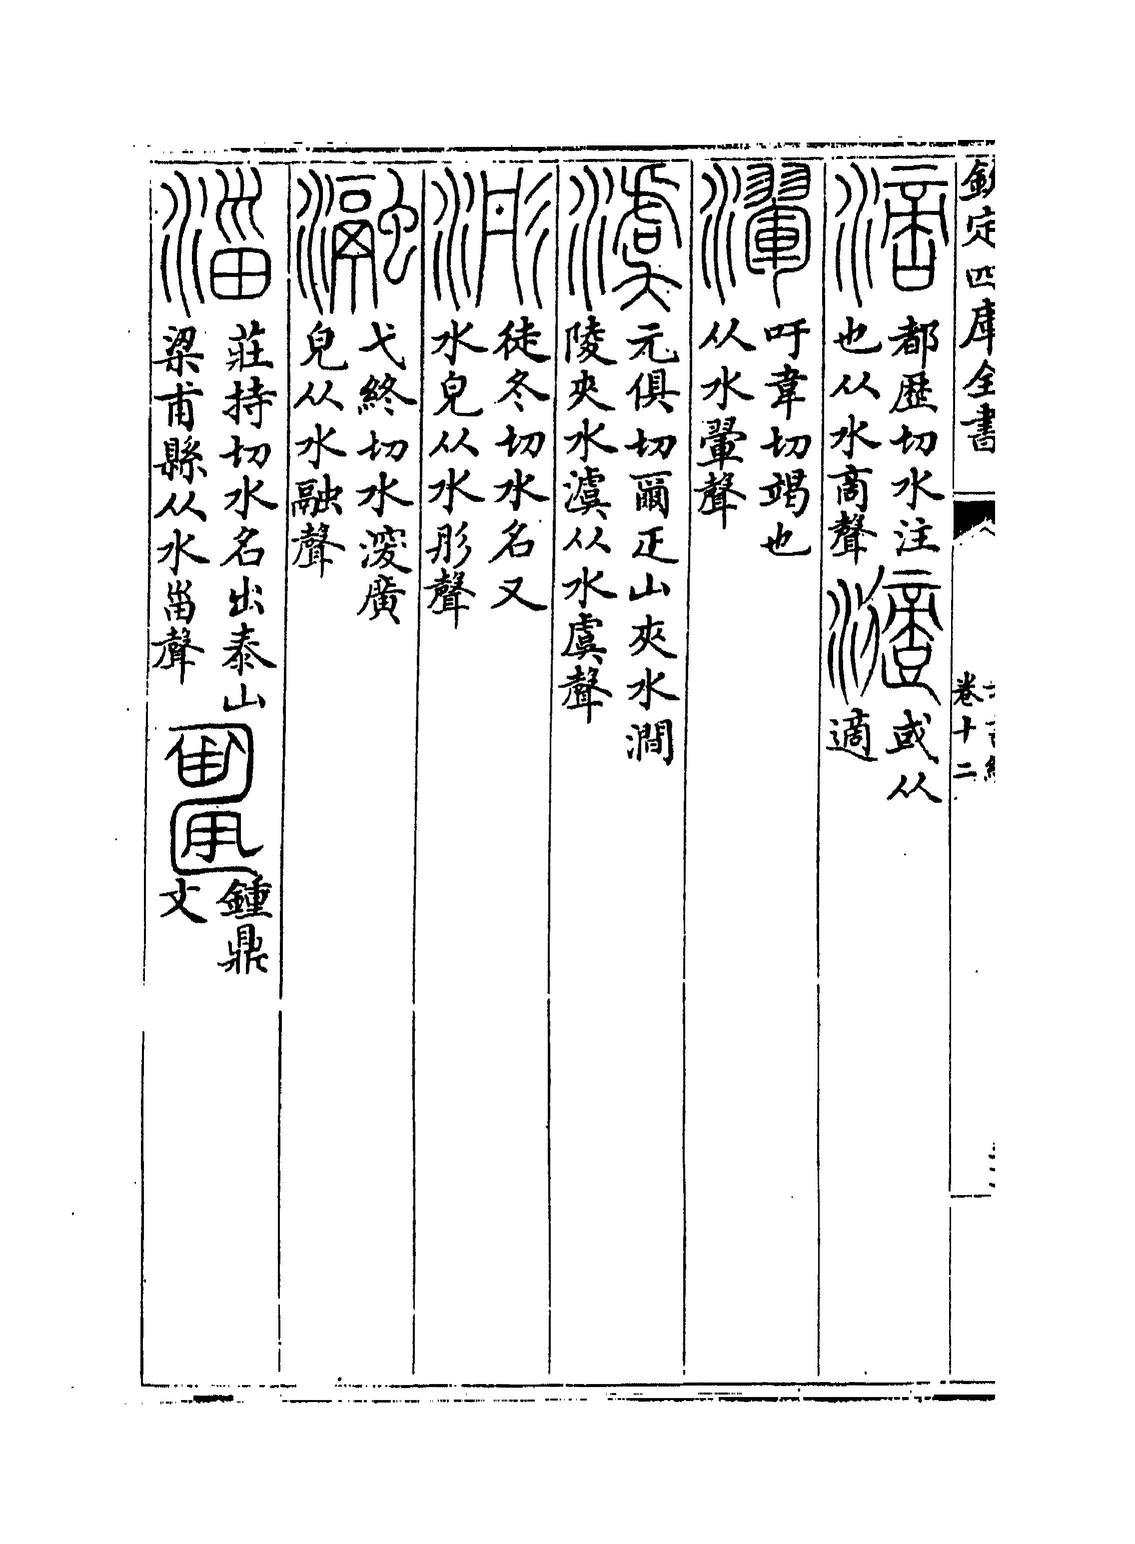 欽定四庫全書
卷十二
滴
都歷切水注
也从水啇聲
或从
適
瀈
吁韋切竭也
从水翬聲
澞
元俱切爾疋山夾水澗
陵夾水澞从水虞聲
浵
徒冬切水名又
水皃从水彤聲
瀜
弋終切水湥廣
皃从水融聲
淄
莊持切水名出泰山
梁甫縣从水甾聲
鍾鼎
文